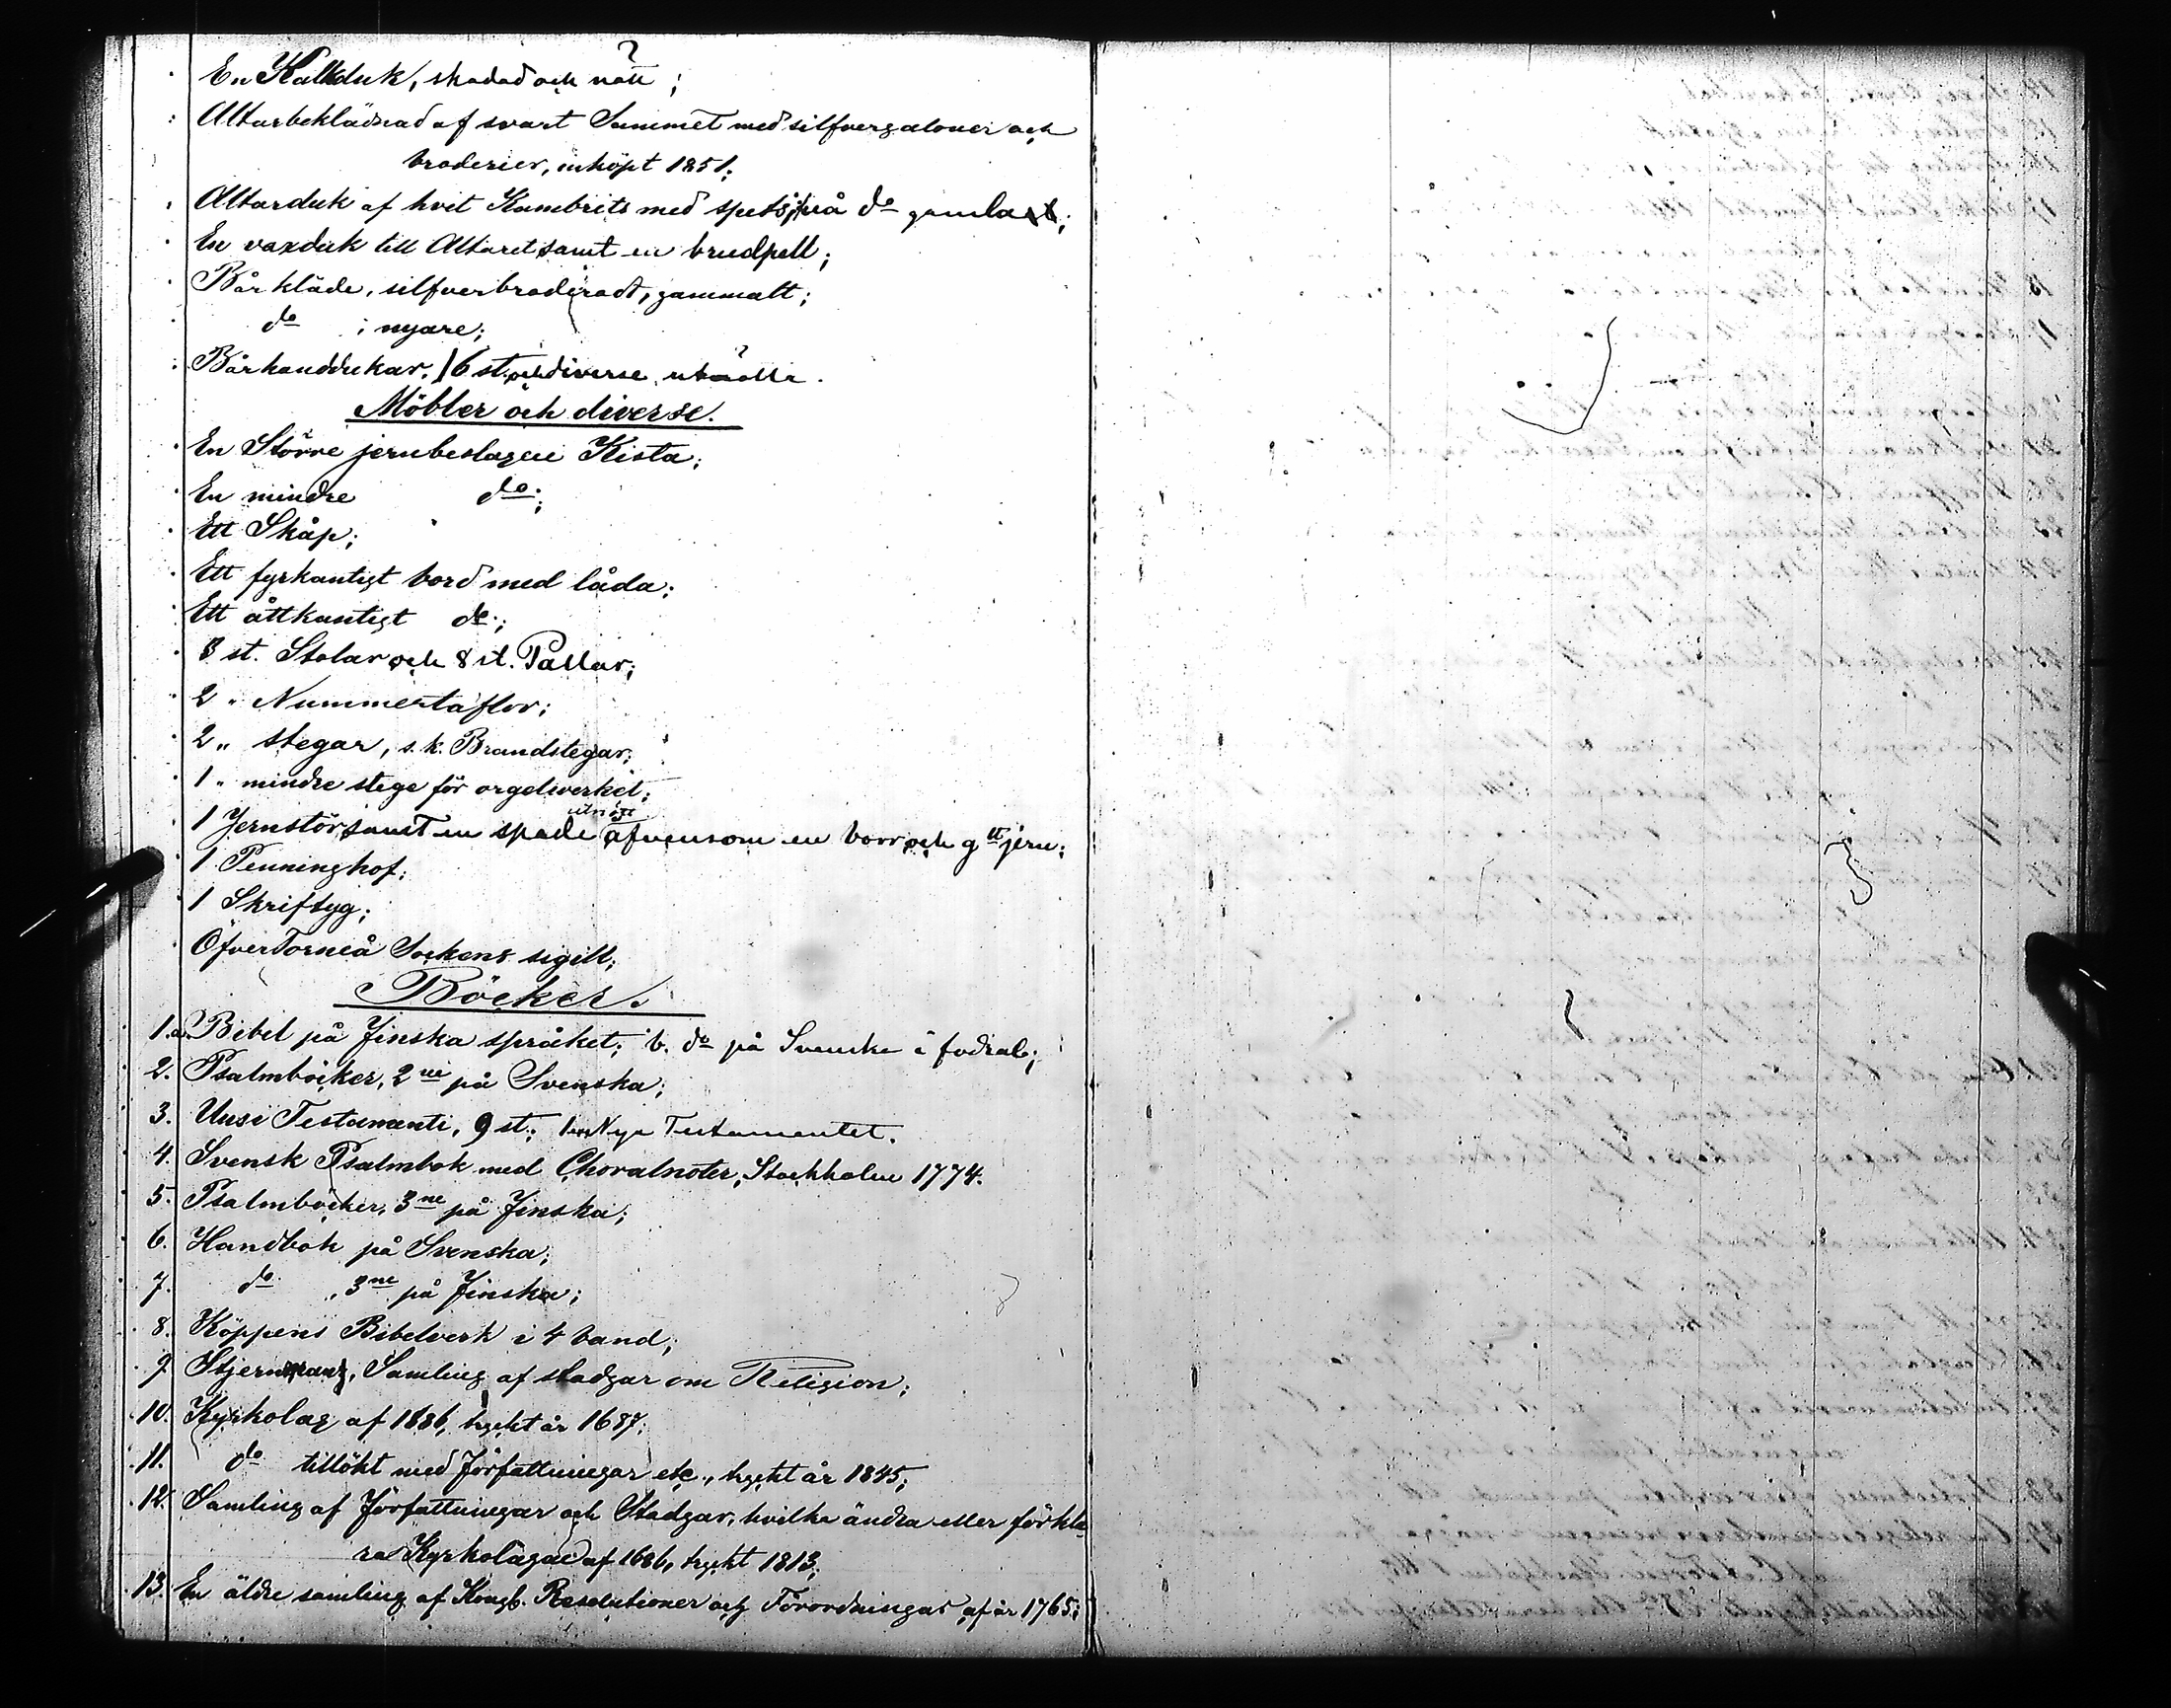 En Kalkduk, skadad och nött;
Altarbeklädnad af svart Sammet med silfvergaloner och
broderier, inköpt 1851;
Altarduk af hvit Kambrits med spets, två do gamla;
En vaxduk till Altaret samt en brudpell;
Bårkläde, silfverbroderadt, gammalt;
do ; nyare;
Bårhanddukar, 16 st. och diverse
Möbler och diverse.
En Större jernbeslagen Kista;
En mindre do;
Ett Skåp;
Ett fyrkantigt bord med låda;
Ett åttkantigt do;
8 st. Stolar och 8 st. Pallar;
2 " Nummertaflor;
2 " stegar, s.k. Brandstegar;
1 " mindre stege för orgelverket;
utnött
1 Jernstör samt en spade äfvensom en borr och gtt jern;
1 Penninghof;
1 Skriftyg;
ÖfverTorneå Sockens sigill;
Böcker.
1. a. Bibel på Finska språket; b. do på Svenska i fodral;
2. Psalmböcker, 2ne på Svenska;
3. Uusi Testamenti, 9 st.; Nya Testamentet.
4. Svensk Psalmbok med Choralnoter, Stockholm 1774.
5. Psalmböcker, 3ne på Finska;
6. Handbok på Svenska;
7. do , 3ne på Finska;
8. Köppens Bibelverk i 4 band;
9 Samling af stadgar om Religion;
10. Kyrkolag af 1686, tryckt år 1687;
11. do tillökt med Författningar etc., tryckt år 1845;
12. Samling af Författningar och Stadgar, hvilka ändra eller förkla
ra Kyrkolagen af 1686, tryckt 1813;
13. En äldre samling af Kongl. Resolutioner och Förordningar af år 1765;